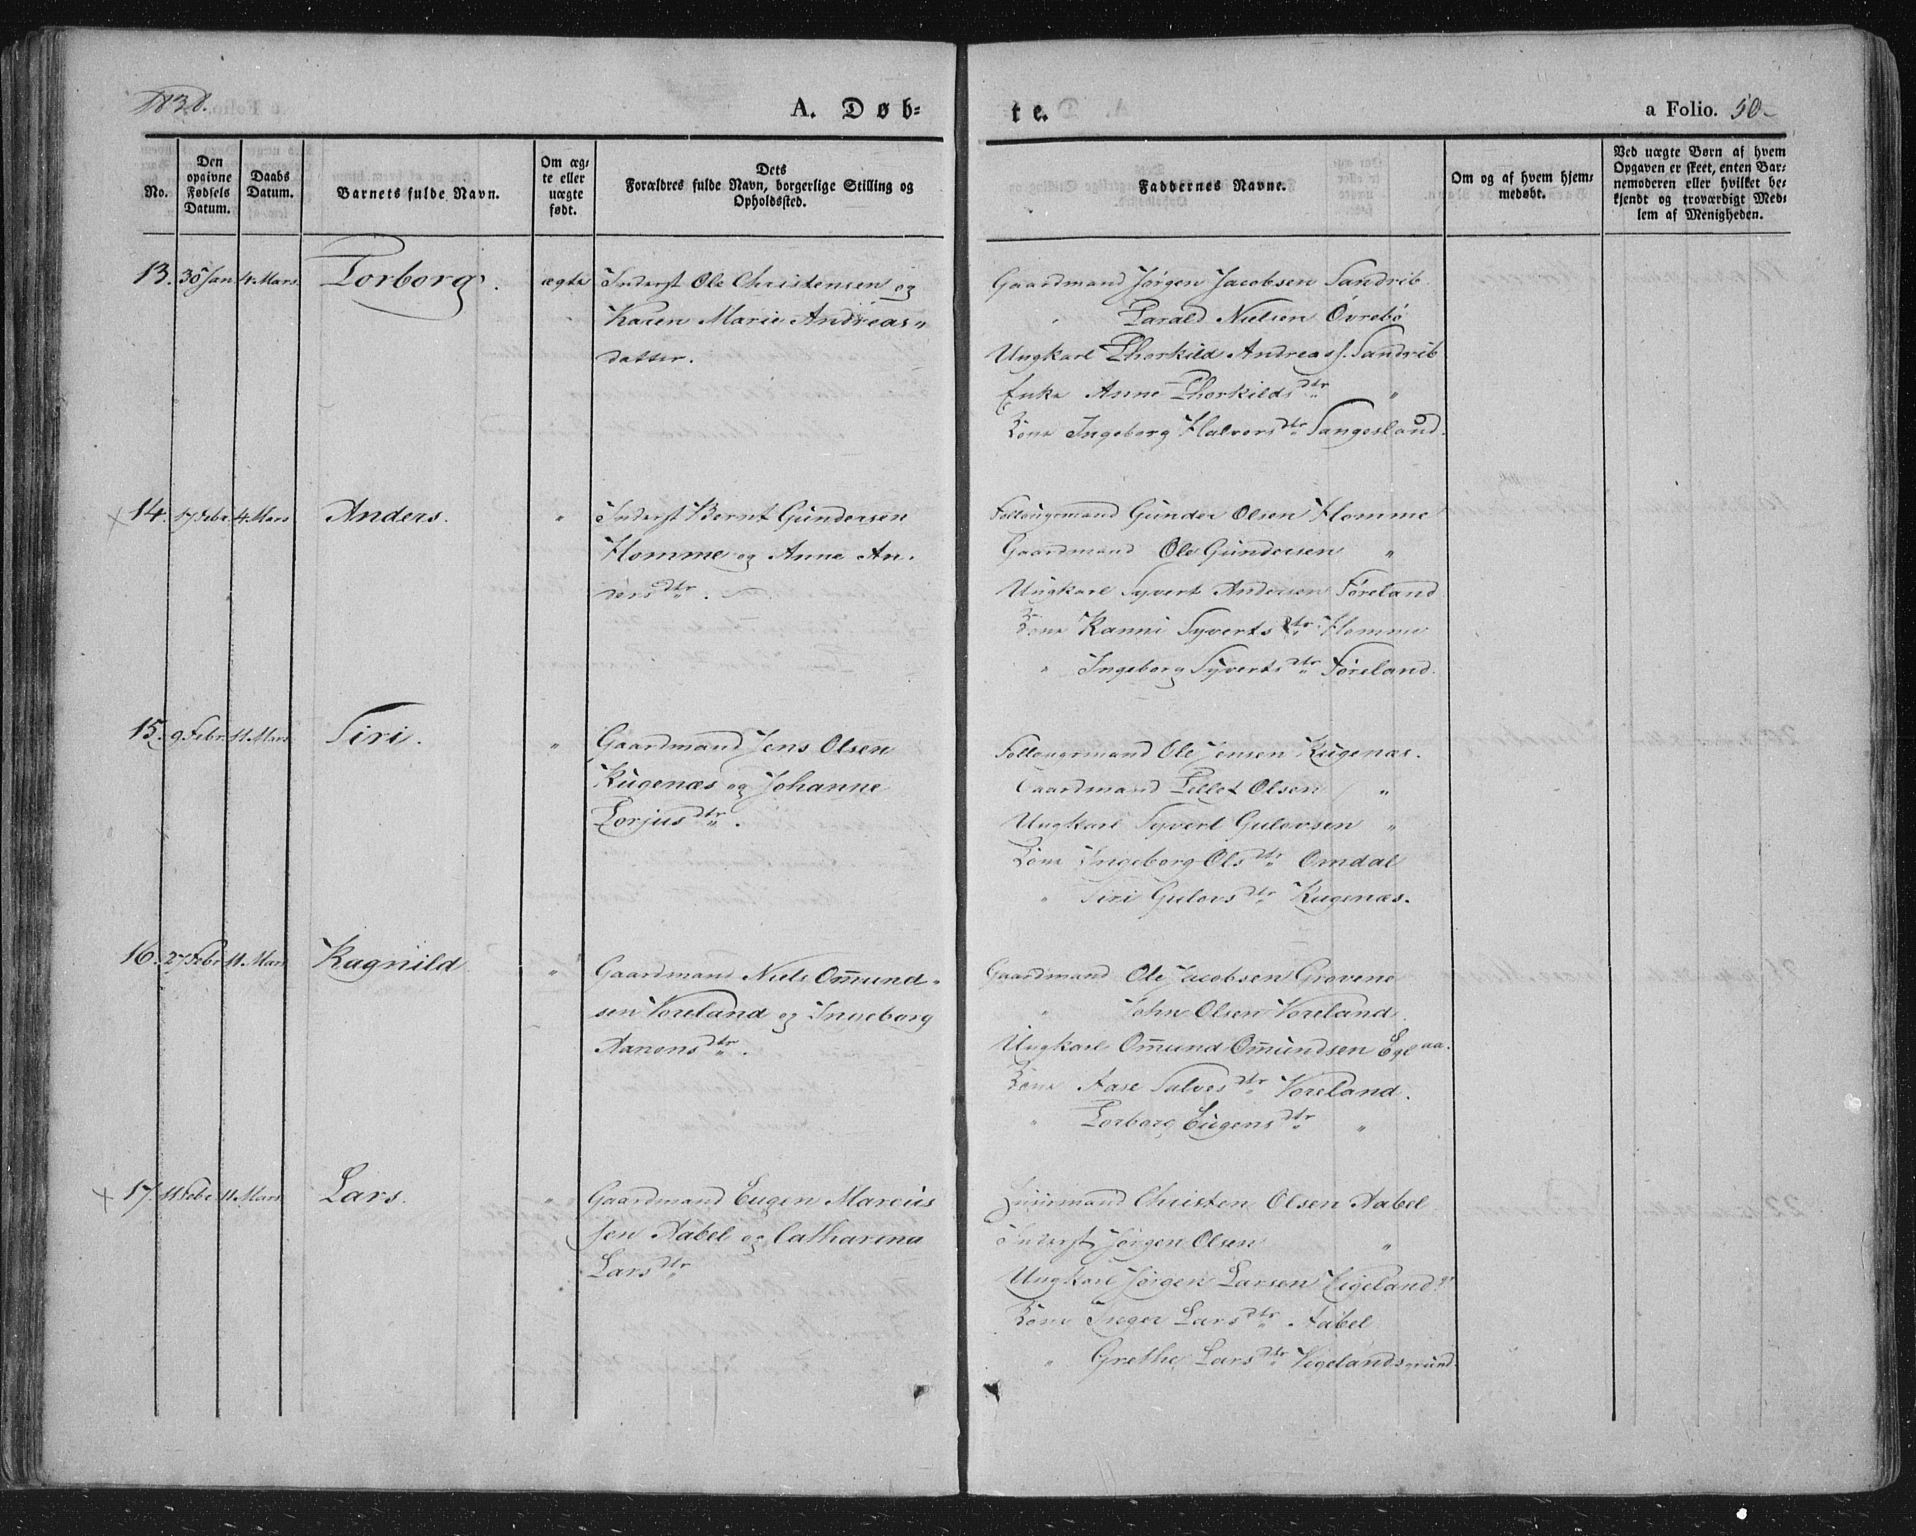 1838.
A. Døb-
te.
a Folio. 50-
No.
Den opgivne Fødsels Datum.
Daabs Datum.
Barnets fulde Navn.
Om ægte eller uægte født.
Dets Forældres fulde Navn, borgerlige Stilling og Opholdsted.
Faddernes Navne.
Om og af hvem hjemmedøbt.
Ved uægte Børn af hvem Opgaven er skeet, enten Barnemoderen eller hvilket bekjendt og troværdigt Medlem af Menigheden.
13. 30 Jan 4. Mars Torborg. ægte Inderst Ole Christensen og
Karen Marie Andreas"
datter.
Gaardmand Jørgen Jacobsen Sandrib
" Tarald Nielsen Övrebö
Ungkarl Thorkild Andreass. Sandrib
Enke Anne Thorkilds dtr "
Kone Ingeborg Halvors dtr Sangesland.
14. 17 Febr. 4. Mars Anders. " Inderst Bernt Gundersen
Homme og Anne An-
ders dtr.
Follougsmand Gunder Olsen Homme
Gaardmand Ole Gundersen "
Ungkarl Syvert Andersen Føreland
Kone Ranni Syverts dtr Homme
" Ingeborg Syverts dtr Føreland.
15. 9 Febr. 11. Mars Siri. " Gaardmand Jens Olsen
Rugenæs og Johanne
Torjus dtr.
Follougsmand Ole Jensen Rugenæs.
Gaardmand Tellef Olsen "
Ungkarl Syvert Gulovsen "
Kone Ingeborg Ols dtr Omdal
" Siri Gulovs dtr Rugenæs.
16. 27 Febr. 11. Mars Ragnild " Gaardmand Niels Omund-
sen Voreland og Ingeborg
Aanons dtr.
Gaardmand Ole Jacobsen Grovene
" John Olsen Voreland.
Ungkarl Omund Omundsen Egeaa.
Kone Aase Salves dtr Voreland.
" Torborg Eugens dtr "
17. 11 Febr. 11. Mars Lars. " Gaardmand Eugen Marcus
sen Aabel og Catharina
Lars dtr
Huusmand Christen Olsen Aabel
Inderst Jørgen Olsen "
Ungkarl Jørgen Larsen Vigeland gr
Kone Inger Lars dtr Aabel
" Grethe Lars dtr Vigelandsgrund.